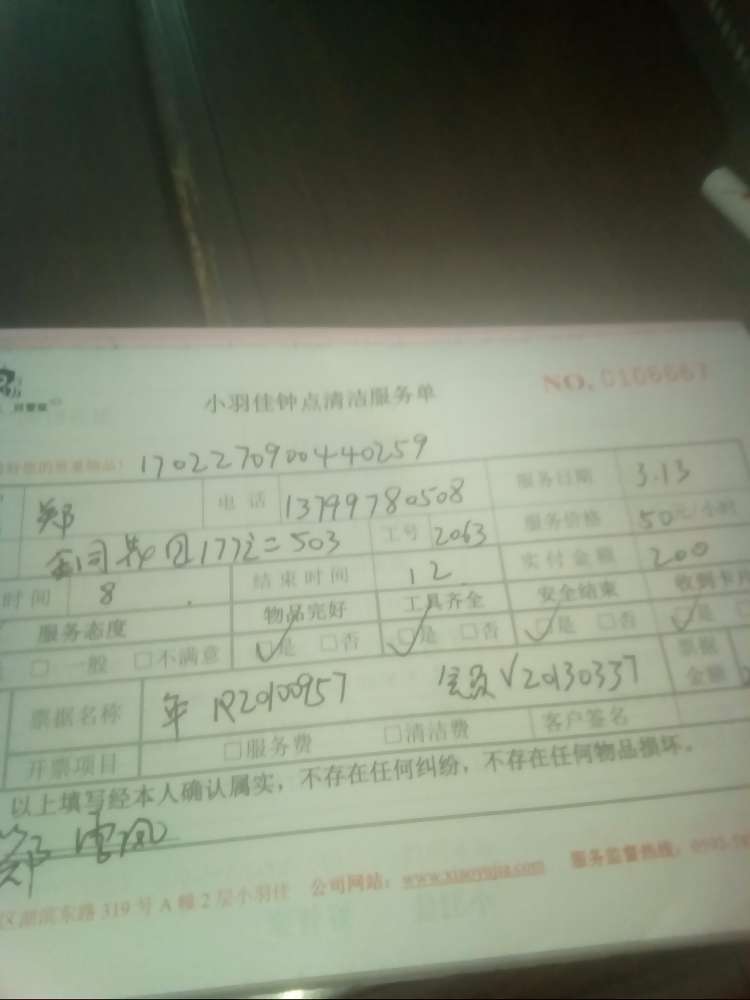 小羽佳钟点清洁服务单 NO. 0106667
1702270900440259
郑 电话 13799780508 服务日期 3.13
503 工号 2063 服务价格 50元/小时
时间 8 结束时间 12 实付金额 200
服务态度 物品完好 工具齐全 安全结束 收到卡
□一般 □不满意 □是 □否 □是 □否 □是 □否 □是
票据名称 年 票据金额
开票项目 □服务费 □清洁费 客户签名
以上填写经本人确认属实，不存在任何纠纷，不存在任何物品损坏。
郑
区湖滨东路319号A幢2层小羽佳 公司网站：www.xiaoyujia.com 服务监督热线：